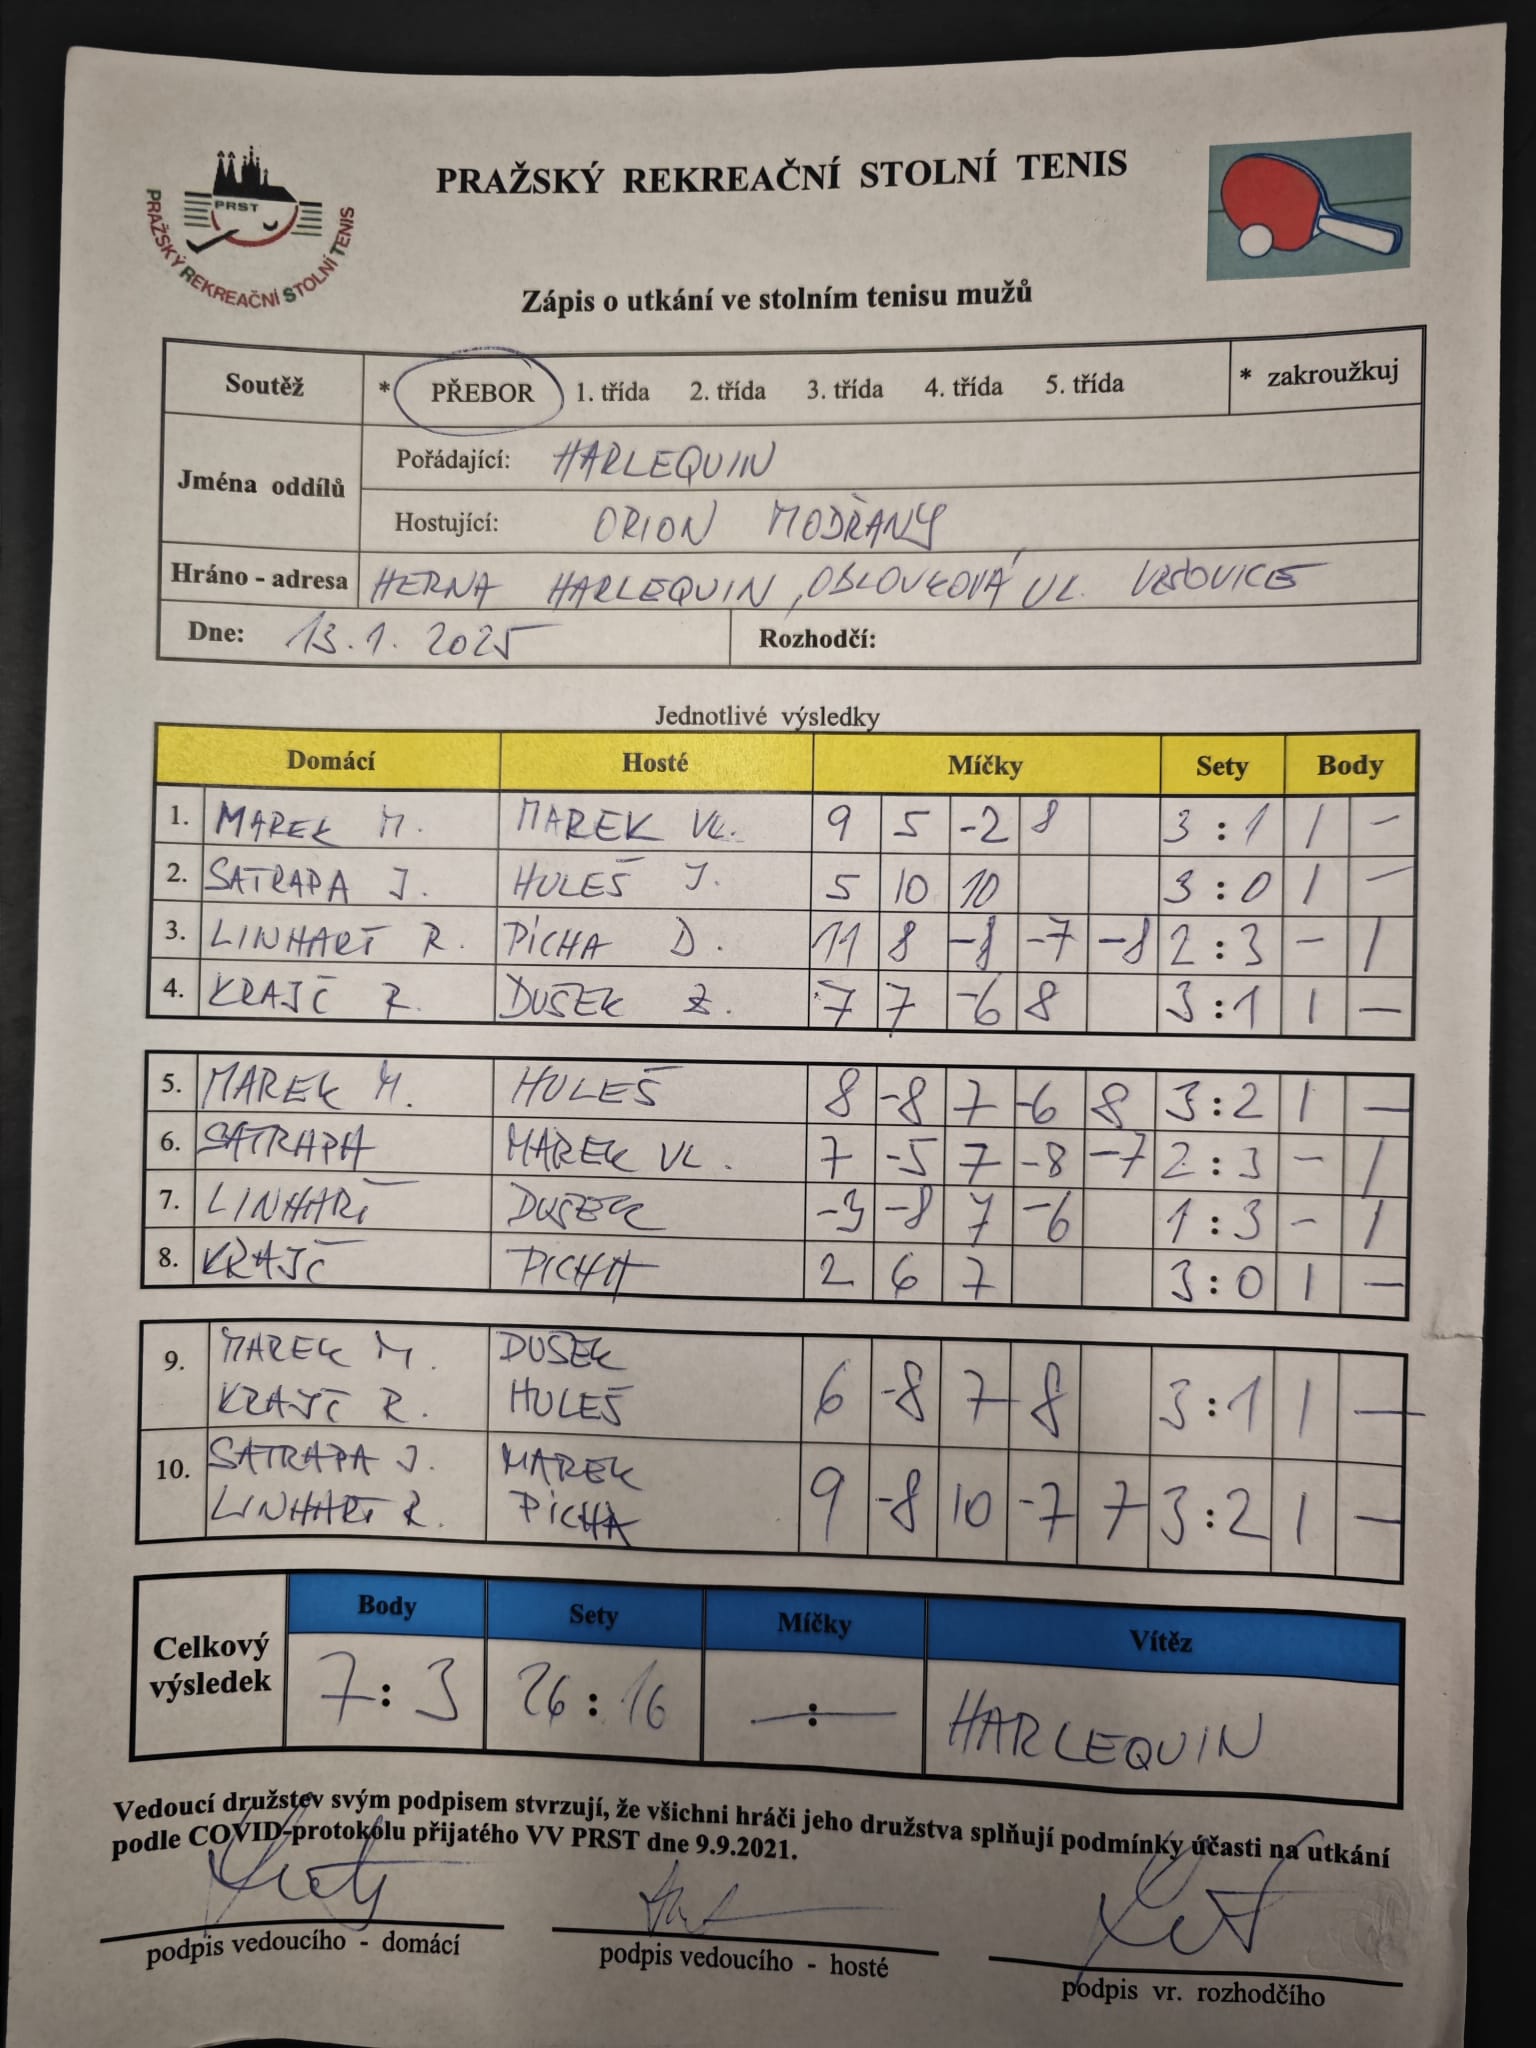 PRST
PRAŽSKÝ REKREAČNÍ STOLNÍ TENIS
PRAŽSKÝ REKREAČNÍ STOLNÍ TENIS
Zápis o utkání ve stolním tenisu mužů
Soutěž * PŘEBOR 1. třída 2. třída 3. třída 4. třída 5. třída * zakroužkuj
Jména oddílů
Pořádající: HARLEQUIN
Hostující: ORION MODŘANY
Hráno - adresa HERNA HARLEQUIN, OBLOUKOVÁ UL. VRŠOVICE
Dne: 13.1. 2025 Rozhodčí:
Jednotlivé výsledky
Domácí Hosté Míčky Sety Body
1. MAREK M. MAREK VL. 9 5 -2 8 3 : 1 1 -
2. SATRAPA J. HULEŠ J. 5 10 10 3 : 0 1 -
3. LINHART R. PÍCHA D. 11 8 -8 -7 -8 2 : 3 - 1
4. KRAJČ R. DUŠEK Z. 7 7 -6 8 3 : 1 1 -
5. MAREK M. HULEŠ 8 -8 7 -6 8 3 : 2 1 -
6. SATRAPA MAREK VL. 7 -5 7 -8 -7 2 : 3 - 1
7. LINHART DUŠEK -3 -8 7 -6 1 : 3 - 1
8. KRAJČ PÍCHA 2 6 7 3 : 0 1 -
9. MAREK M. DUŠEK 6 -8 7 8 3 : 1 1 -
KRAJČ R. HULEŠ
10. SATRAPA J. MAREK 9 -8 10 -7 7 3 : 2 1 -
LINHART R. PÍCHA
Celkový výsledek
Body Sety Míčky Vítěz
7 : 3 26 : 16 - : - HARLEQUIN
Vedoucí družstev svým podpisem stvrzují, že všichni hráči jeho družstva splňují podmínky účasti na utkání
podle COVID-protokolu přijatého VV PRST dne 9.9.2021.
podpis vedoucího - domácí podpis vedoucího - hosté podpis vr. rozhodčího